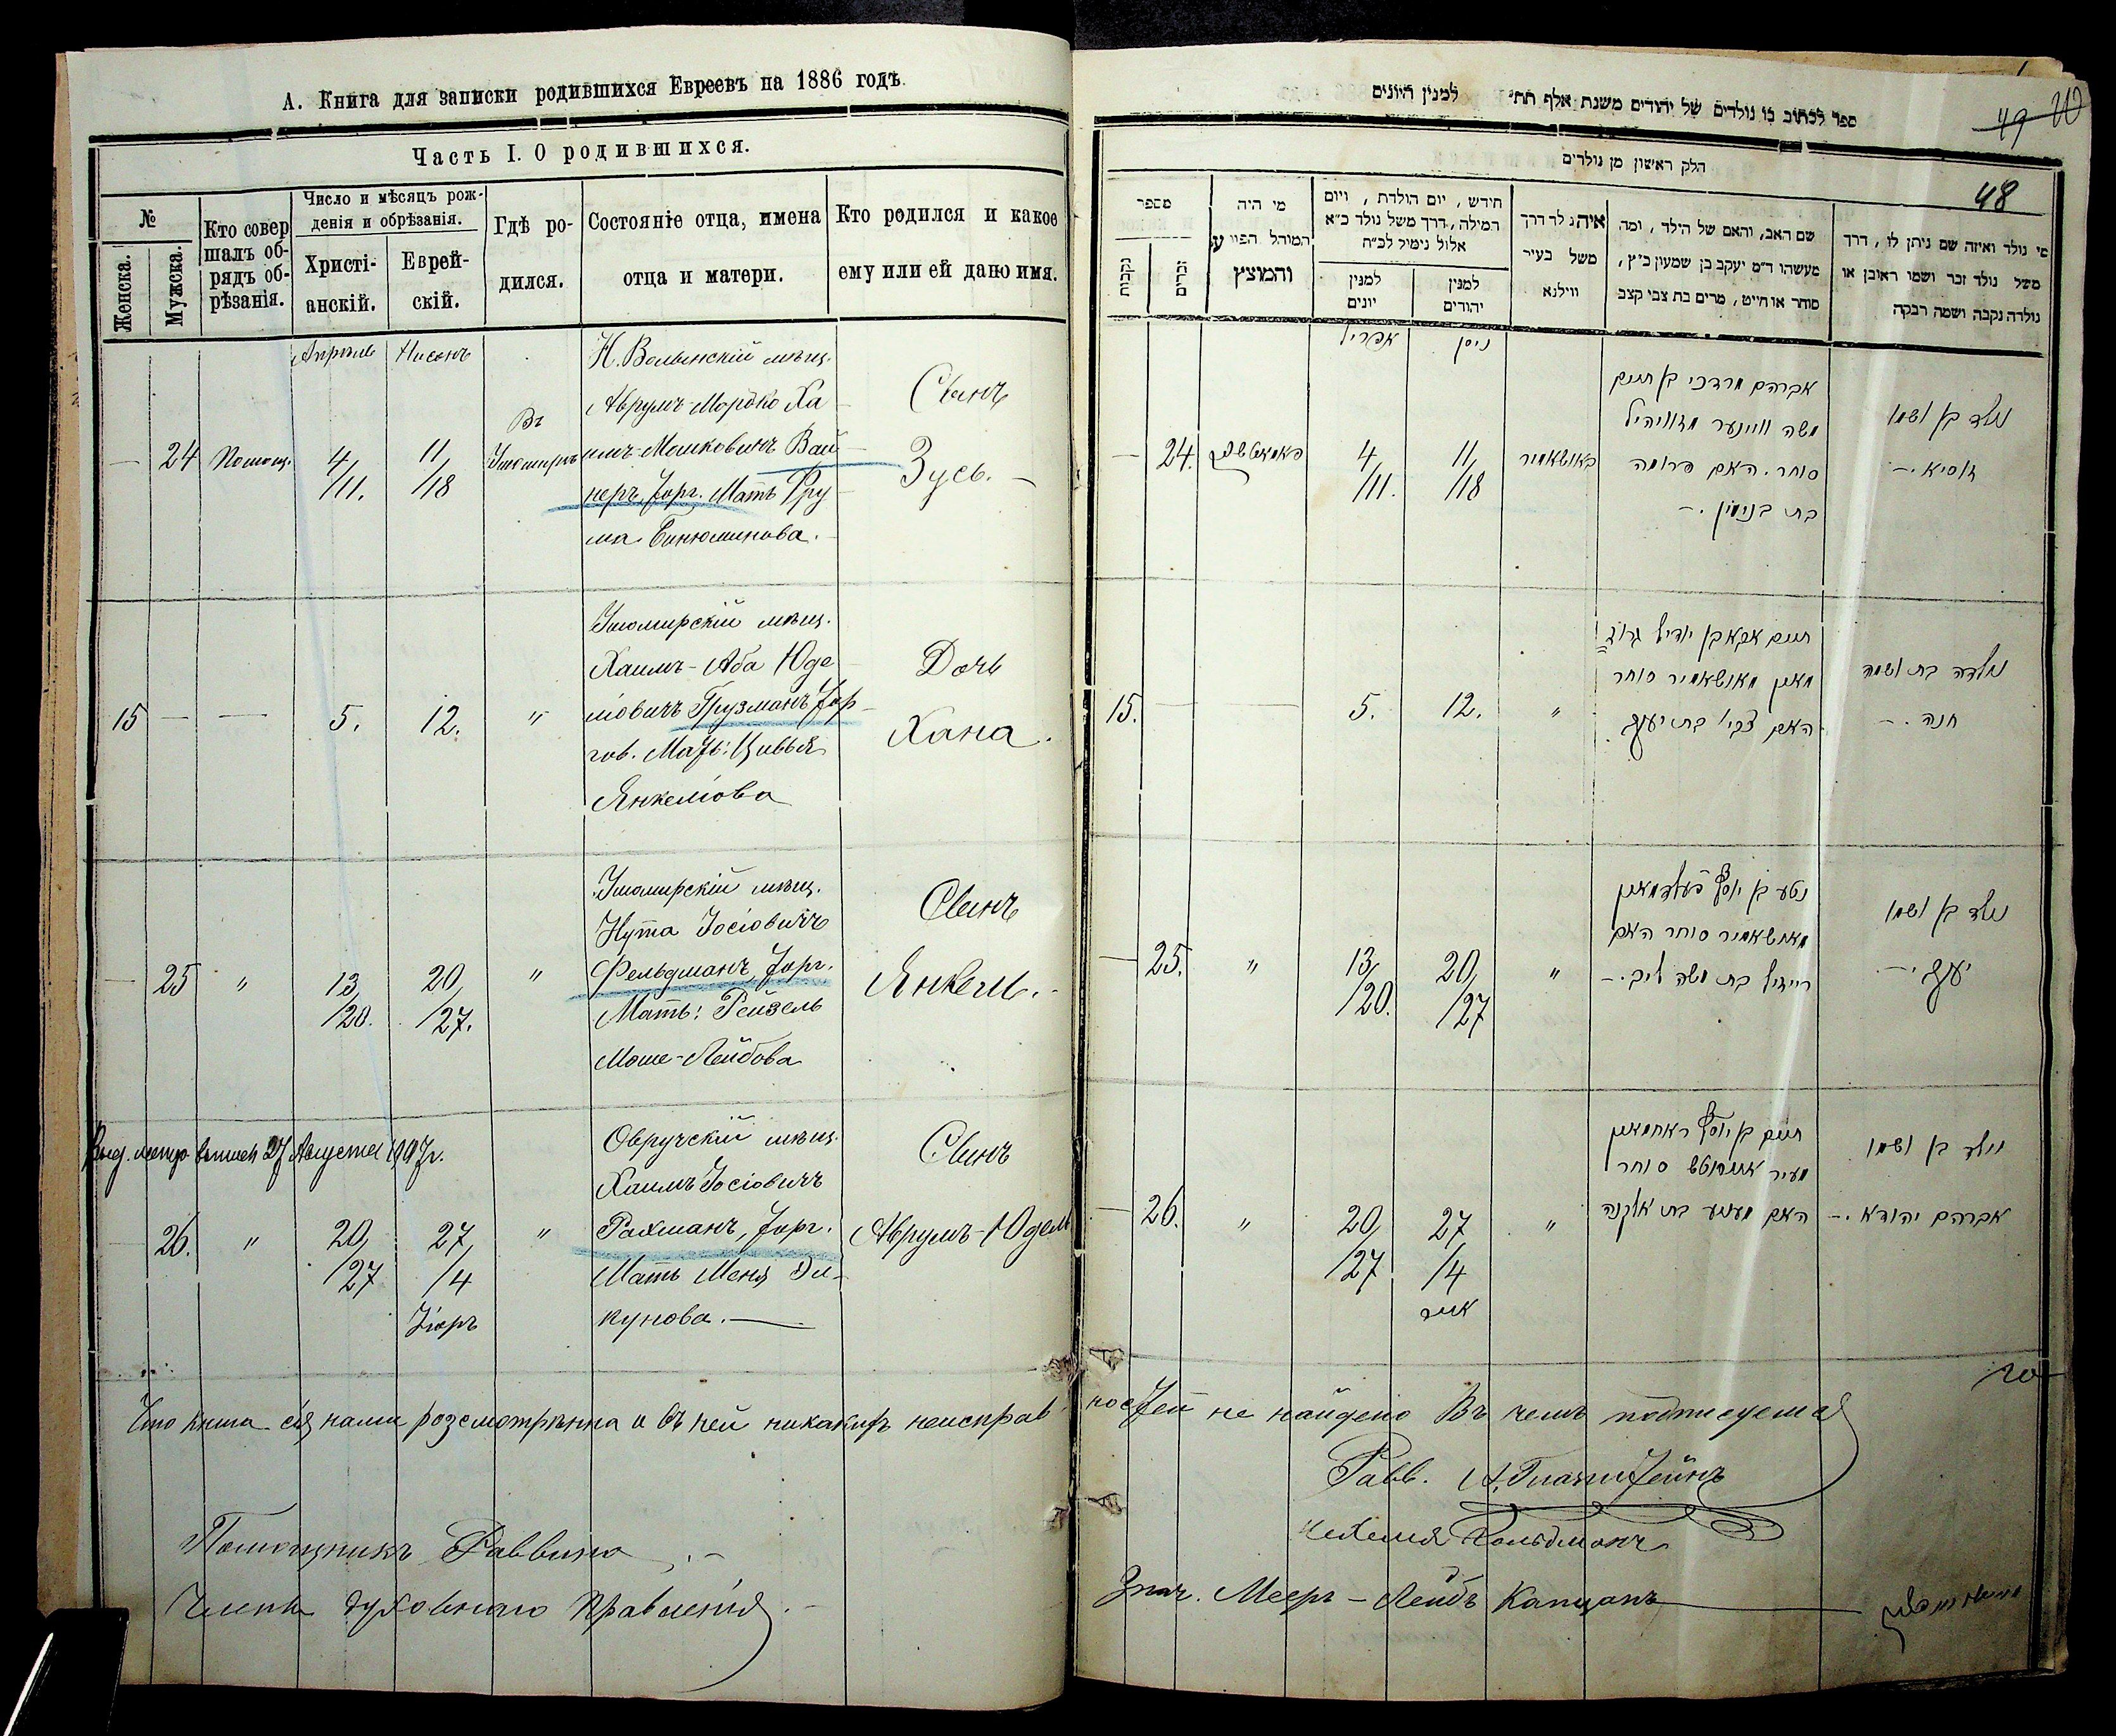 А. Книга для записки родившихся Евреевъ на 1886 годъ.
Часть I. О родившихся.
№
Женска.
Мужска.
Кто совер
шалъ об-
рядъ об-
рѣзанія.
Число и мѣсяцъ рож-
денія и обрѣзанія.
Христі-
анскій.
Еврей-
скій.
Гдѣ ро-
дился.
Состояніе отца, имена
отца и матери.
Кто родился и какое
ему или ей дано имя.
Апрель Нисонъ
— 24 Помощ. 4/11. 11/18
Въ
Ушомирѣ
Н. Волынскій мѣщ.
Аврумъ-Мордко Ха
имъ-Мошковичъ Вай
неръ, Торг. Мать Фру
ма Бинюминова.
Сынъ
Зусь. —
15 — — 5. 12. "
Ушомирскій мѣщ.
Хаимъ-Аба Юде
ліовичъ Грузманъ Тор
гов. Мать: Цивья
Янкеліова
Дочь
Хана.
— 25 " 13/20. 20/27. "
Ушомирскій мѣщ.
Нута Іосіовичъ
Фельдманъ, Торг.
Мать: Рейзель
Моше-Лейбова
Сынъ
Янкель. -
Выд. метр. выпись 27 Августа 1907 г.
26. " 20/27 27/4
Ііоръ
"
Овручскій мѣщ.
Хаимъ Іосіовичъ
Рахманъ, Торг.
Мать Меня Эл-
кунова. —
Сынъ
Аврумъ-Юдель
Что книга сія нами розсмотрѣнна и въ ней никакихъ неисправ
Помощникъ Раввина
Члены духовнаго правленія. -
ספר לכתוב בו נולדים של יהודים משנת אלף תת״ למנין היונים
49 20
48
חלק ראשון מן נולדים
מספר
נקבות
זכרים
מי היה
המוהל הפורע
והמוצץ
חידש, יום הולדת, ויום
המילה, דרך משל נולד כ״א
אלול נימול לכ״ח
למנין
יונים
למנין
יהודים
איה נולד דרך
משל בעיר
ווילנא
שם האב, והאם של הילד, ומה
מעשהו ד״מ יעקב בן שמעון כ״ץ,
סוחר או חייט, מרים בת צבי קצב
מי נולד ואיזה שם ניתן לו, דרך
משל נולד זכר ושמו ראובן או
נולדה נקבה ושמה רבקה
אפריל ניסן
— 24. 4/11. 11/18 אושאמיר
אברהם מרדכי בן חיים
משה וויינער
סוחר. האם פרומה
בת בנימין. -
נולד בן ושמו
זוסיא. -
15. — — 5. 12. "
חיים אבא בן יודיל גרוז
מאן מאושאמיר סוחר
האם צביי בת יעקב.
נולדה בת ושמה
חנה. -
— 25. " 13/20. 20/27 "
נטע בן יוסף פעלדמאן
מאושאמיר סוחר האם
רייזיל בת משה ליב. -
נולד בן ושמו
יעקב. -
— 26. " 20/27 27/4
אייר
"
חיים בן יוסף ראחמאן
מעיר סוחר
האם מעניע בת אלקנה
נולד בן ושמו
אברהם יהודא. -
ностей не найдено Въ чемъ подписуемся
Равв.
Нехемя Гольдманъ
Знач. Мееръ-Лейбъ Капцанъ